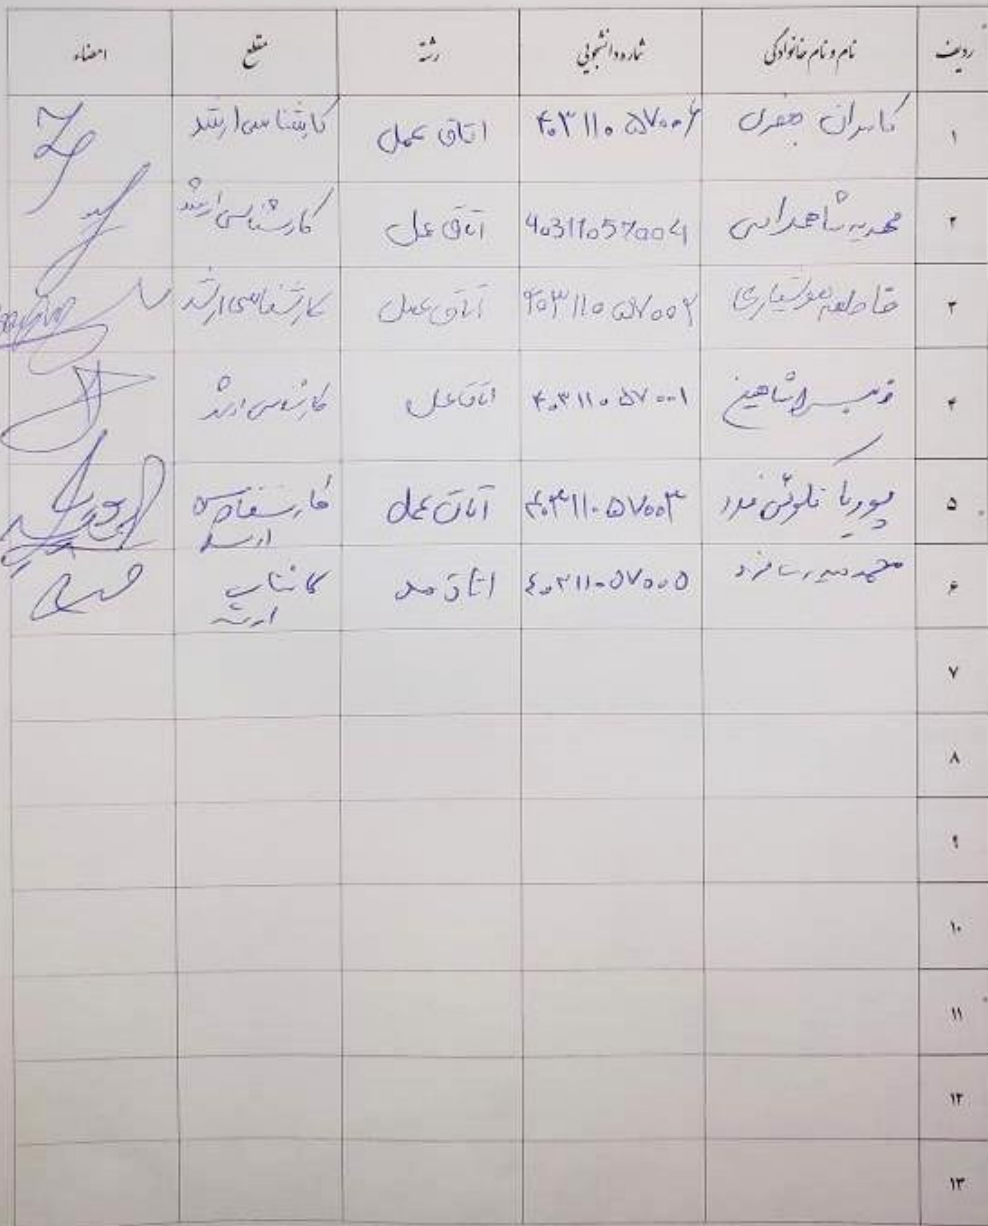 ردیف نام و نام خانوادگی شماره دانشجویی رشته مقطع امضاء
۱ کامران جعفری ۴۰۳۱۱۰۵۷۰۰۶ اتاق عمل کارشناسی ارشد
۲ 403110570004 اتاق عمل کارشناسی ارشد
۳ فاطمه هوشیاری ۴۰۳۱۱۰۵۷۰۰۲ اتاق عمل کارشناسی ارشد
۴ ۴۰۳۱۱۰۵۷۰۰۱ اتاق عمل کارشناسی ارشد
۵ پوریا ۴۰۳۱۱۰۵۷۰۰۳ اتاق عمل کارشناسی
ارشد
۶ محمد ۴۰۳۱۱۰۵۷۰۰۵ اتاق عمل
ارشد
۷
۸
۹
۱۰
۱۱
۱۲
۱۳